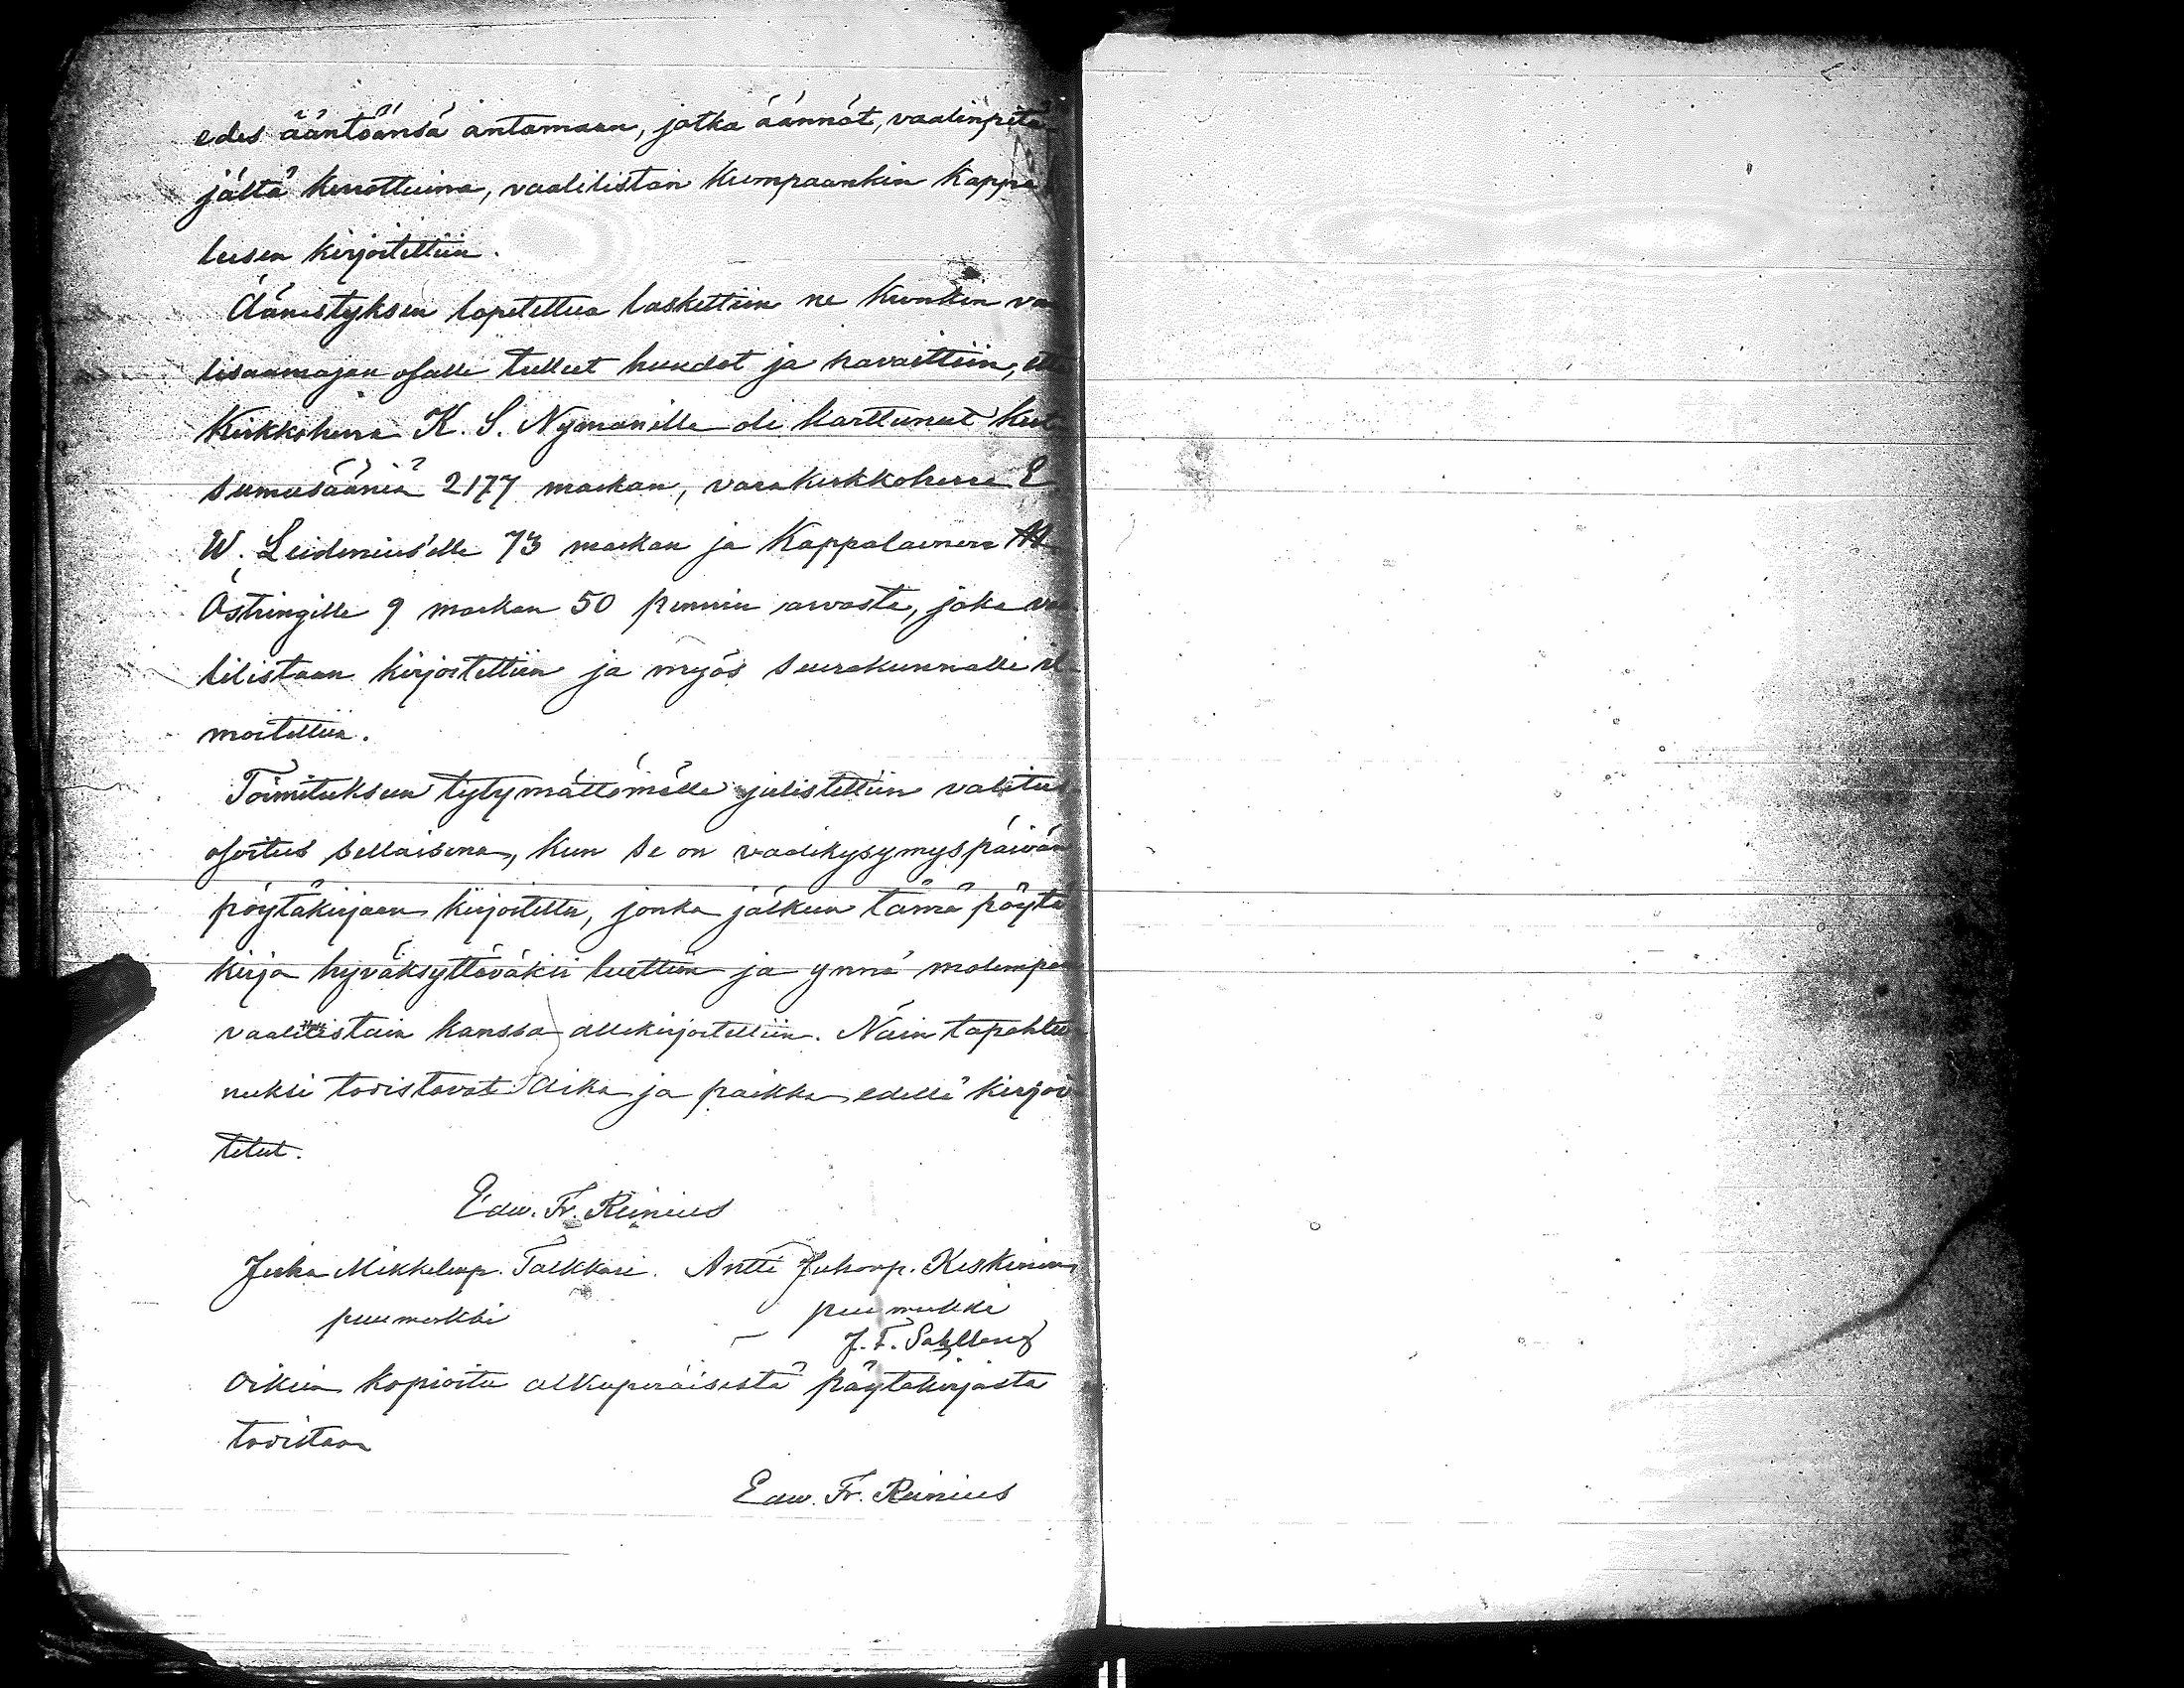 edes ääntöänsä antamaan, jotka äännöt, vaalinpitä-
jältä kerrottuina, vaalilistan kumpaankin kappa-
leesen kirjoitettiin.
Äänestyksen lopetettua laskettiin ne kunkin vaa
lisaarnajan osalle tulleet huudot ja havaittiin, että
Kirkkoherra K. S. Nymanille oli karttunut kut-
sumusääniä 2177 markan, varakirkkoherra E.
W. Leidenius'elle 73 markan ja Kappalainen
Östringille 9 markan 50 pennin arvosta, joka vaa
lilistaan kirjoitettiin ja myös seurakunnalle il-
moitettiin.
Toimitukseen tytymättömälle julistettiin valitus-
osoitus sellaisena, kun se on vaalikysymyspäivän
pöytäkirjaan kirjoitettu, jonka jälkeen tämä pöytä
kirja hyväksyttäväksi luettiin ja ynnä molempain
vaalilistain kanssa allekirjoitettiin. Näin tapahtu-
neeksi todistavat Aika ja paikka edellä kirjoi-
tetut.
Edw. Fr. Reinius
Juha Mikkelinp. Talkkari. Antti Juhonp. Keskinen
puumerkki puumerkki
J. F. Sahlberg
Oikein kopioitu alkuperäisestä pöytäkirjasta
todistaa
Edw. Fr. Reinius